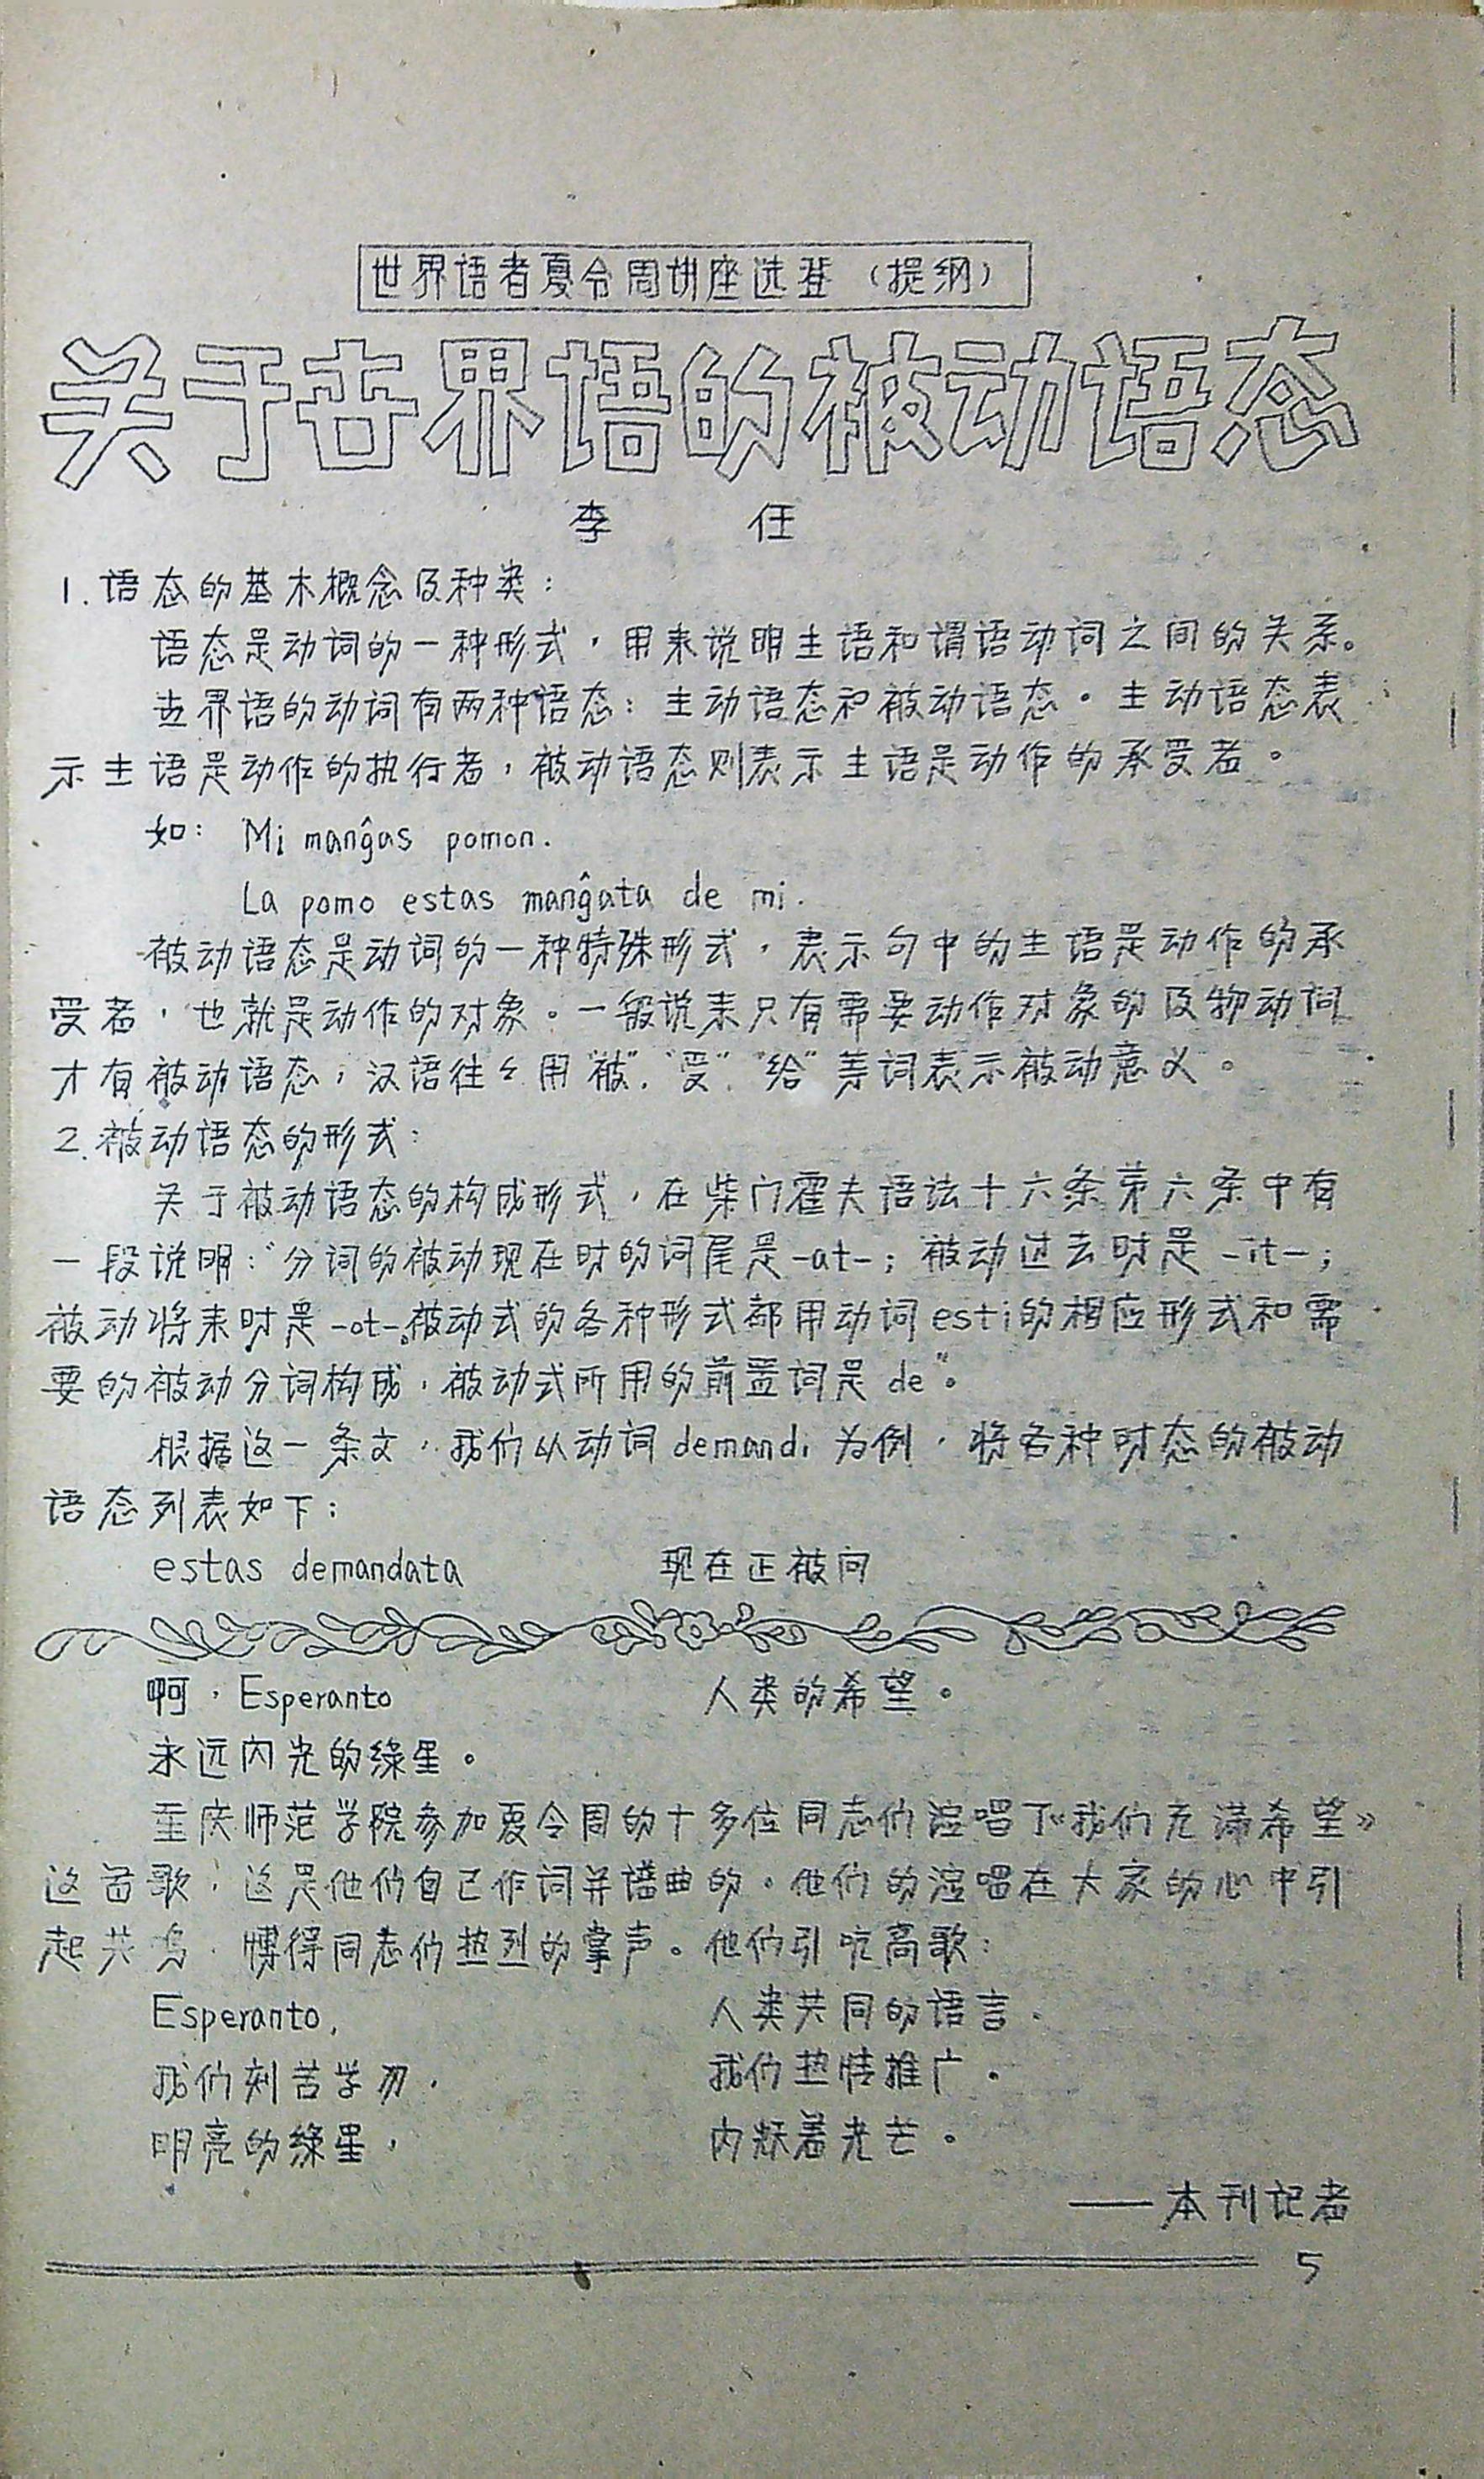 世界语者夏令周讲座选登（提纲）
关于世界语的被动语态
李 任
1.语态的基本概念及种类：
语态是动词的一种形式，用来说明主语和谓语动词之间的关系。
世界语的动词有两种语态：主动语态和被动语态。主动语态表
示主语是动作的执行者，被动语态则表示主语是动作的承受者。
如：Mi manĝas pomon.
La pomo estas manĝata de mi.
被动语态是动词的一种特殊形式，表示句中的主语是动作的承
受者，也就是动作的对象。一般说来只有需要动作对象的及物动词
才有被动语态，汉语往々用“被”、“受”、“给”等词表示被动意义。
2.被动语态的形式：
关于被动语态的构成形式，在柴门霍夫语法十六条第六条中有
一段说明：“分词的被动现在时的词尾是-at-；被动过去时是-it-；
被动将来时是-ot-。被动式的各种形式都用动词esti的相应形式和需
要的被动分词构成，被动式所用的前置词是de”。
根据这一条文，我们以动词demandi为例，将各种时态的被动
语态列表如下：
estas demandata 现在正被问
啊，Esperanto 人类的希望。
永远闪光的绿星。
重庆师范学院参加夏令周的十多位同志们演唱了《我们充满希望》
这首歌，这是他们自己作词并谱曲的。他们的演唱在大家的心中引
起共鸣，博得同志们热烈的掌声。他们引吭高歌：
Esperanto, 人类共同的语言，
我们刻苦学习， 我们热情推广。
明亮的绿星， 闪烁着光芒。
——本刊记者
5